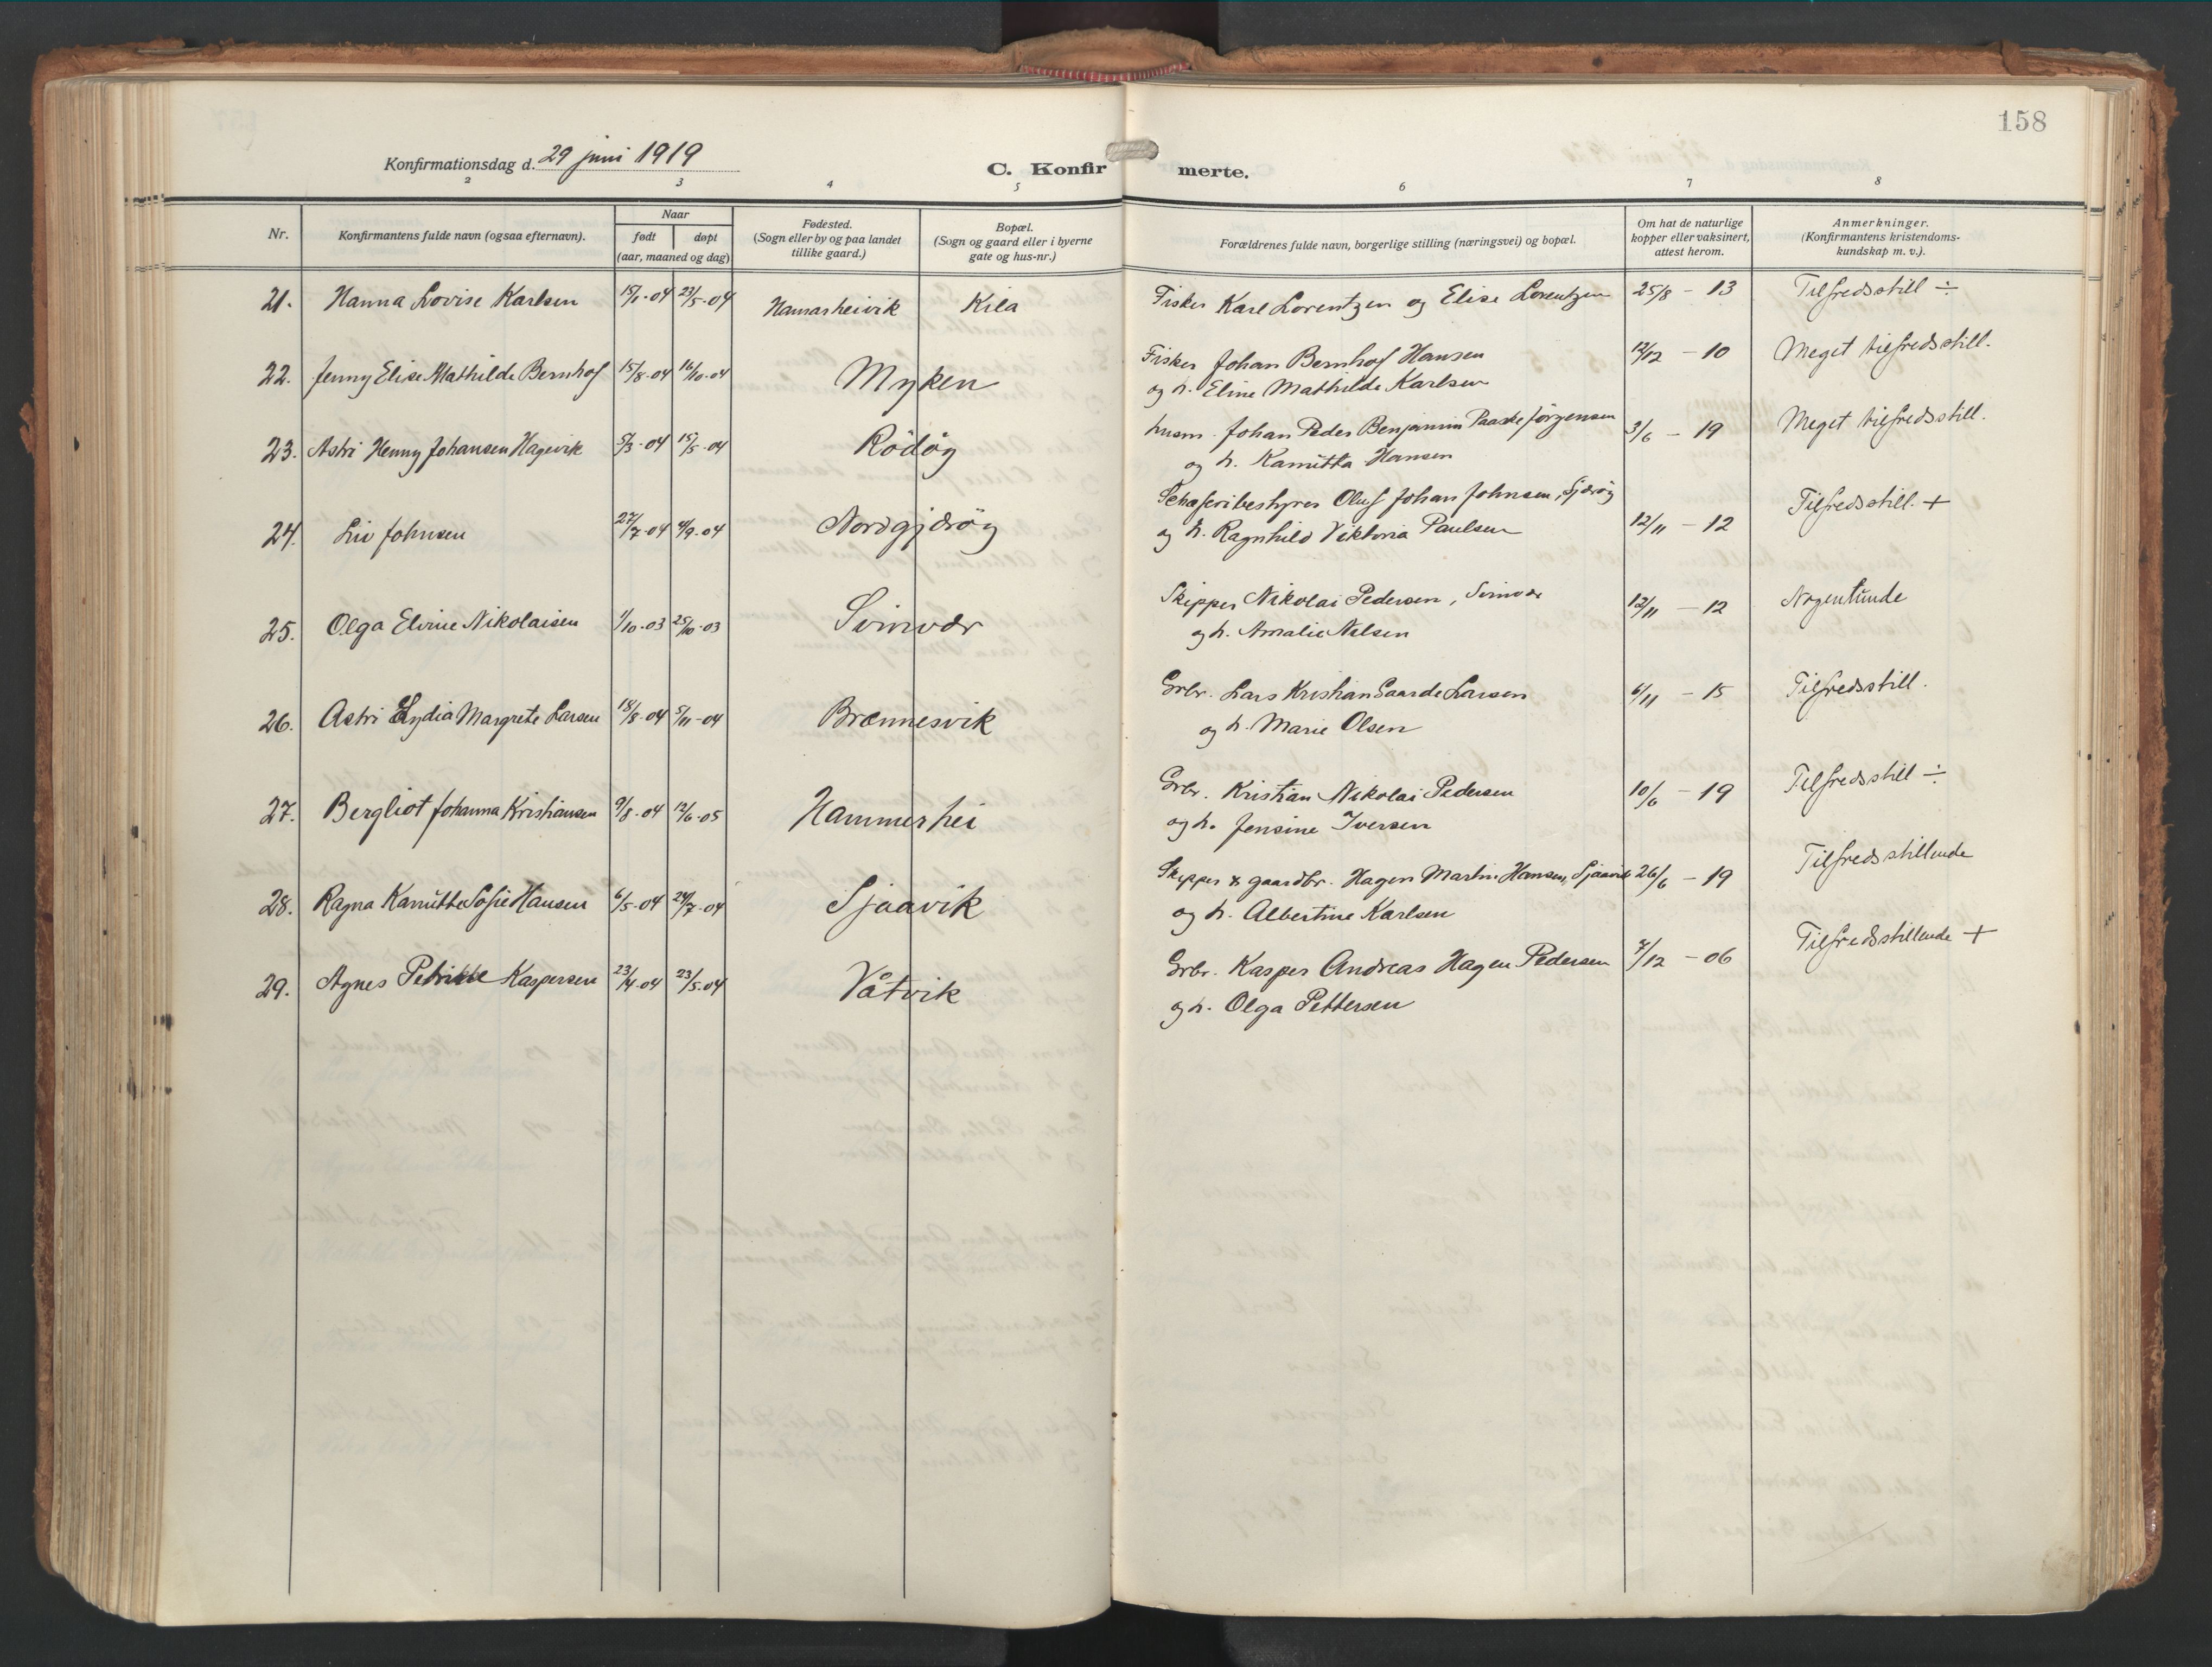 158
Konfirmationsdag d. 29 juni 1919
C. Konfir merte.
2 3 4 5 6 7 8
Nr.
Konfirmantens fulde navn (ogsaa efternavn).
Naar
født døpt
(aar, maaned og dag)
Fødested.
(Sogn eller by og paa landet
tillike gaard.)
Bopæl.
(Sogn og gaard eller i byerne
gate og hus-nr.)
Forældrenes fulde navn, borgerlige stilling (næringsvei) og bopæl.
Om hat de naturlige
kopper eller vaksinert,
attest herom.
Anmerkninger.
(Konfirmantens kristendoms-
kundskap m. v.).
21. Hanna Lovise Karlsen 15/1-04 23/5-04 Hamarheivik Kila Fisker Karl Lorentzen og Elise Lorentzen 25/8 - 13 Tilfredsstill ÷
22. Jenny Elise Mathilde Bernhof 15/8-04 16/10-04 Myken Fisker Johan Bernhof Hansen 12/12 - 10 Meget tilfredsstill.
og h. Eline Mathilde Karlsen
23. Astri Henny Johansen Hagevik 5/3-04 15/5-04 Rödöy husm. Johan Peder Benjamin Paaske Jörgensen 3/6 - 19 Meget tilfredsstill.
og h. Kamitta Hansen
24. Liv Johnsen 27/7-04 4/9-04 Nordgjæröy Oluf Johan Johnsen, Gjæröy Tilfredsstill. +
og h. Ragnhild Viktoria Paulsen 12/11 - 12
25. Olga Elvine Nikolaisen 1/10-03 25/10-03 Svinvær Skipper Nikolai Pedersen, Svinvær 12/11 - 12 Nogenlunde
og h. Amalie Nilsen
26. Astri Lydia Margrete Larsen 18/8-04 5/11-04 Brænnesvik Grbr. Lars Kristian Gaarde Larsen 6/11 - 15 Tilfredsstill.
og h. Marie Olsen
27. Bergliot Johanna Kristiansen 9/8-04 12/6-05 Hammerhei Grbr. Kristian Nikolai Pedersen 10/6 - 19 Tilfredsstill ÷
og h. Jensine Iversen
28. Ragna Kamitte Sofie Hansen 6/5-04 24/7-04 Sjaavik Skipper & gaardbr. Hagen Martin Hansen, Sjaavik 26/6 - 19 Tilfredsstillende
og h. Albertine Karlsen
29. Agnes Petrikke Kaspersen 23/4-04 23/5-04 Våtvik Grbr. Kasper Andreas Hagen Pedersen 7/12 - 06 Tilfredsstillende +
og h. Olga Pettersen